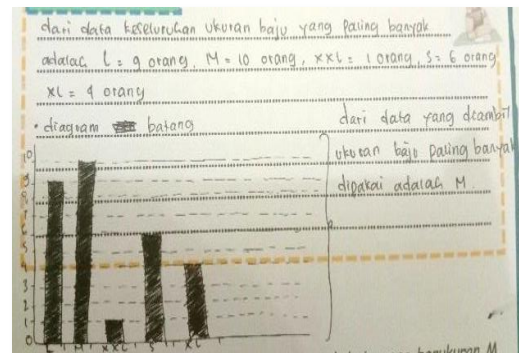 dari data keseluruhan ukuran baju yang paling banyak
adalah L = 9 orang, M = 10 orang, XXL = 1 orang, S = 6 orang
XL = 4 orang
• diagram batang
dari data yang diambil
ukuran baju paling banyak
dipakai adalah M.
10
9
8
7
6
5
4
3
2
1
0
L M XXL S XL
M